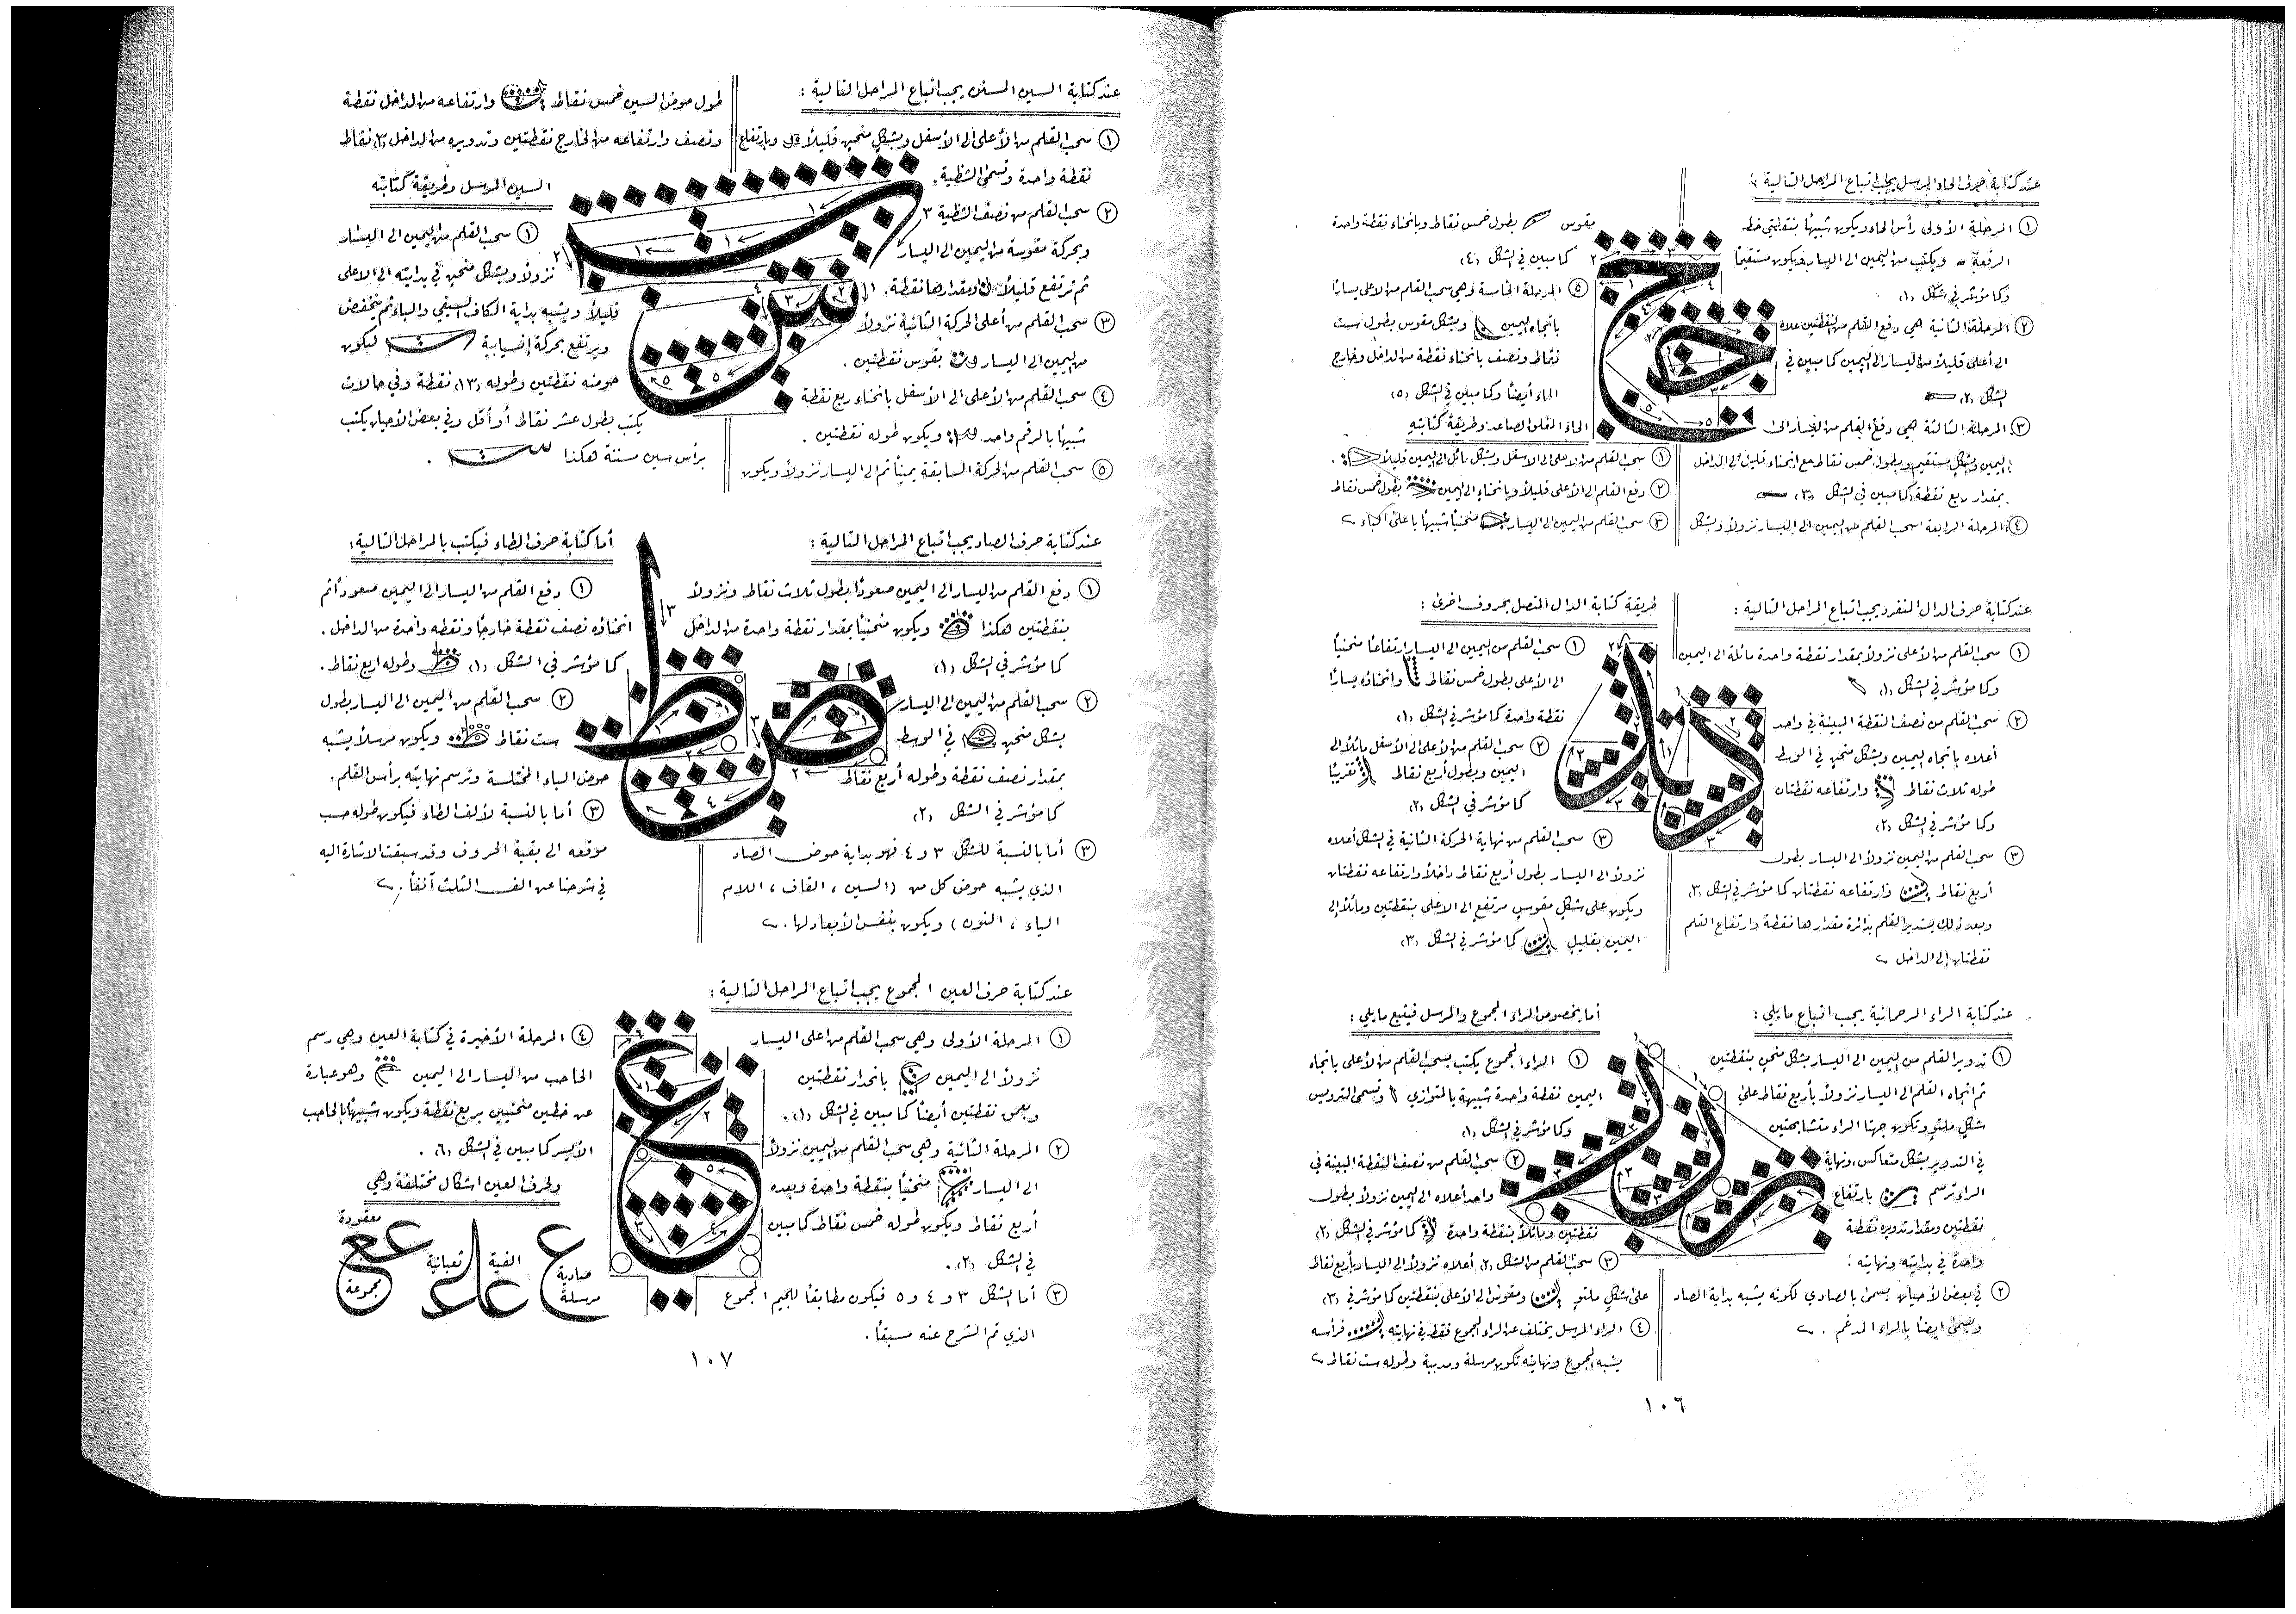 عند كتابة حرف الحاء المرسل يجب اتباع المراحل التالية :
① المرحلة الأولى رأس الحاء ويكون شبيهاً بنقطتي خط
الرقعة ويكتب من اليمين الى اليسار ويكون مستقيماً
وكما مؤشر في شكل (١)
② المرحلة الثانية هي دفع القلم من النقطتين علاه
الى أعلى قليلاً من اليسار الى اليمين كما مبين في
الشكل (٢)
③ المرحلة الثالثة هي دفع القلم من اليسار الى
اليمين وبشكل مستقيم وبطول خمس نقاط مع انحناء قليل الى الداخل
بمقدار ربع نقطة كما مبين في الشكل (٣)
④ المرحلة الرابعة سحب القلم من اليمين الى اليسار نزولاً وبشكل
مقوس بطول خمس نقاط وبانحناء نقطة واحدة
كما مبين في الشكل (٤)
⑤ المرحلة الخامسة وهي سحب القلم من الاعلى يسارا
باتجاه اليمين وبشكل مقوس بطول ست
نقاط ونصف بانحناء نقطة من الداخل وخارج
الحاء أيضاً وكما مبين في الشكل (٥)
الحاء المقلوب الصاعد وطريقة كتابته
① سحب القلم من الاعلى الى الاسفل وبشكل مائل الى اليمين قليلاً
② دفع القلم الى الأعلى قليلاً وبانحناء الى اليمين بطول خمس نقاط
③ سحب القلم من اليمين الى اليسار منحنياً شبيهاً باعلى الباء
عند كتابة حرف الدال المنفرد يجب اتباع المراحل التالية :
① سحب القلم من الأعلى نزولاً بمقدار نقطة واحدة مائلة الى اليمين
وكما مؤشر في الشكل (١)
② سحب القلم من نصف النقطة المبينة في واحد
أعلاه باتجاه اليمين وبشكل منحن في الوسط
طوله ثلاث نقاط وارتفاعه نقطتان
وكما مؤشر في الشكل (٢)
③ سحب القلم من اليمين نزولاً الى اليسار بطول
أربع نقاط وارتفاعه نقطتان كما مؤشر في الشكل (٣)
وبعد ذلك يستدير القلم بدائرة مقدارها نقطة وارتفاع القلم
نقطتان إلى الداخل
طريقة كتابة الدال المتصل بحروف اخرى :
① سحب القلم من اليمين الى اليسار ارتفاعاً منحنياً
الى الأعلى بطول خمس نقاط وانحناؤه يسارا
نقطة واحدة كما مؤشر في الشكل (١)
② سحب القلم من الأعلى الى الأسفل مائلاً الى
اليمين وبطول أربع نقاط تقريبا
كما مؤشر في الشكل (٢)
③ سحب القلم من نهاية الحركة الثانية في الشكل أعلاه
نزولاً الى اليسار بطول أربع نقاط داخلاً وارتفاعه نقطتان
ويكون على شكل مقوس مرتفع إلى الاعلى بنقطتين ومائلاً إلى
اليمين بقليل كما مؤشر في الشكل (٣)
عند كتابة الراء الرحمانية يجب اتباع مايلي :
① تدوير القلم من اليمين الى اليسار بشكل منحن بنقطتين
ثم اتجاه القلم الى اليسار نزولاً بأربع نقاط على
شكل ملتو وتكون جهتا الراء متشابهتين
في التدوير بشكل متعاكس، ونهاية
الراء ترسم بارتفاع
نقطتين ومقدار تدويره نقطة
واحدة في بدايته ونهايته :
② في بعض الأحيان يسمى بالصادي لكونه يشبه بداية الصاد
ويسمى ايضاً بالراء المدغم .
أما بخصوص الراء المجموع والمرسل فيتبع مايلي :
① الراء المجموع يكتب بسحب القلم من الأعلى باتجاه
اليمين نقطة واحدة شبيهة بالمتوازي وتسمى الترويس
وكما مؤشر في الشكل (١)
② سحب القلم من نصف النقطة المبينة في
واحد أعلاه الى اليمين نزولاً بطول
نقطتين ومائلاً بنقطة واحدة كما مؤشر في الشكل (٢)
③ سحب القلم من الشكل (٢) أعلاه نزولاً الى اليسار بأربع نقاط
على شكل ملتو ومقوس الى الأعلى بنقطتين كما مؤشر في (٣)
④ الراء المرسل يختلف عن الراء المجموع فقط في نهايته فرأسه
يشبه المجموع ونهايته تكون مرسلة ومدببة وطوله ست نقاط
١٠٦
عند كتابة السين المسنن يجب اتباع المراحل التالية :
① سحب القلم من الأعلى الى الأسفل وبشكل منحن قليلاً وبارتفاع
نقطة واحدة وتسمى الشظية .
② سحب القلم من نصف الشظية
وبحركة مقوسة من اليمين الى اليسار
ثم ترتفع قليلاً ومقدارها نقطة .
③ سحب القلم من أعلى الحركة الثانية نزولاً
من اليمين الى اليسار بقوس نقطتين .
④ سحب القلم من الأعلى الى الأسفل بانحناء ربع نقطة
شبيهاً بالرقم واحد ويكون طوله نقطتين .
⑤ سحب القلم من الحركة السابقة يميناً ثم الى اليسار نزولاً ويكون
طول حوض السين خمس نقاط وارتفاعه من الداخل نقطة
ونصف وارتفاعه من الخارج نقطتين وتدويره من الداخل (٣) نقاط
السين المرسل وطريقة كتابته
① سحب القلم من اليمين الى اليسار
نزولاً وبشكل منحن في بدايته الى الاعلى
قليلاً ويشبه بداية الكاف السيفي والباء ثم ينخفض
ويرتفع بحركة إنسيابية ليكون
حوضه نقطتين وطوله (١٣) نقطة وفي حالات
يكتب بطول عشر نقاط أو أقل وفي بعض الأحيان يكتب
برأس سين مسننة هكذا .
عند كتابة حرف الصاد يجب اتباع المراحل التالية :
① دفع القلم من اليسار الى اليمين صعوداً بطول ثلاث نقاط ونزولاً
بنقطتين هكذا ويكون منحنياً بمقدار نقطة واحدة من الداخل
كما مؤشر في الشكل (١)
② سحب القلم من اليمين الى اليسار
بشكل منحن في الوسط
بمقدار نصف نقطة وطوله أربع نقاط
كما مؤشر في الشكل (٢)
③ أما بالنسبة للشكل ٣ و ٤ فهو بداية حوض الصاد
الذي يشبه حوض كل من (السين ، القاف ، اللام
الياء ، النون) ويكون بنفس الأبعاد لها .
أما كتابة حرف الطاء فيكتب بالمراحل التالية :
① دفع القلم من اليسار الى اليمين صعوداً ثم
انحناؤه نصف نقطة خارجاً ونقطه واحدة من الداخل .
كما مؤشر في الشكل (١) وطوله اربع نقاط .
② سحب القلم من اليمين الى اليسار بطول
ست نقاط ويكون مرسلاً يشبه
حوض الباء المختلسة وترسم نهايته برأس القلم .
③ أما بالنسبة لألف الطاء فيكون طوله حسب
موقعه الى بقية الحروف وقد سبقت الاشارة اليه
في شرحنا عن الف الثلث آنفاً .
عند كتابة حرف العين المجموع يجب اتباع المراحل التالية :
① المرحلة الأولى وهي سحب القلم من اعلى اليسار
نزولاً الى اليمين بانحدار نقطتين
وبعمق نقطتين أيضاً كما مبين في الشكل (١) .
② المرحلة الثانية وهي سحب القلم من اليمين نزولاً
الى اليسار منحنياً بنقطة واحدة وبعده
أربع نقاط ويكون طوله خمس نقاط كما مبين
في الشكل (٢) .
③ أما الشكل ٣ و ٤ و ٥ فيكون مطابقاً للجيم المجموع
الذي تم الشرح عنه مسبقاً .
④ المرحلة الأخيرة في كتابة العين وهي رسم
الحاجب من اليسار الى اليمين وهو عبارة
عن خطين منحنيين بربع نقطة ويكون شبيهاً بالحاجب
الأيسر كما مبين في الشكل (٦) .
ولحرف العين اشكال مختلفة وهي
صادية مرسلة
الفية
ثعبانية
معقودة
مجموعة
١٠٧